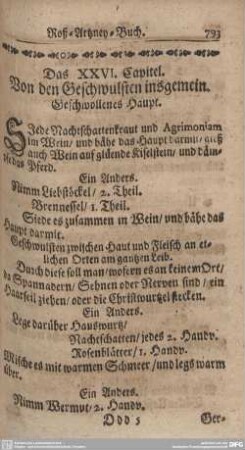 Roß-Artzney-Buch. 793
Das XXVI. Capitel.
Von den Geschwulsten insgemein.
Geschwollenes Haupt.
SJede Nachtschattenkraut und Agrimoniam
im Wein/ und bähe das Haupt darmit/ gieß
auch Wein auf glüende Kiselstein/ und däm-
das Pferd.
Ein Anders.
Nimm Liebstöckel/ 2. Theil.
Brennessel/ 1. Theil.
Siede es zusammen in Wein/ und bähe das
Haupt darmit.
Geschwulsten zwischen Haut und Fleisch an et-
lichen Orten am gantzen Leib.
Durch diese soll man/ wofern es an keinem Ort/
da Spannadern/ Sehnen oder Nerven sind/ ein
Haarseil ziehen/ oder die Christwurtzel stecken.
Ein Anders.
Lege darüber Hauswurtz/
Nachtschatten/ jedes 2. Handv.
Rosenblätter/ 1. Handv.
Mische es mit warmen Schmeer/ und legs warm
über.
Ein Anders.
Nimm Wermut/ 2. Handv.
Ddd 5 Ger-